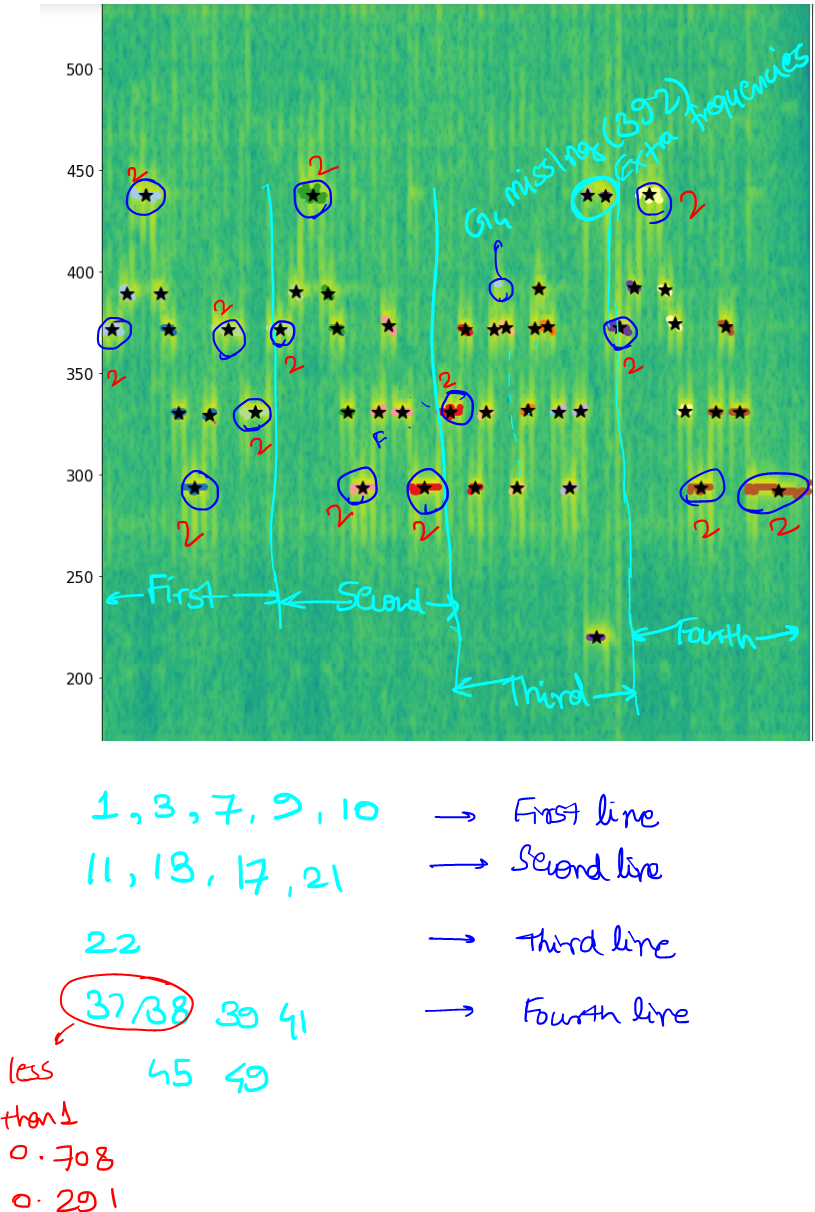 500
450
400
350
300
250
200
G4 missing (392)
Extra frequencies
2
2
2
2
2
2
2
2
2
F
2
2
2
2
2
First
Second
Third
Fourth
1, 3, 7, 9, 10 → First line
11, 13, 17, 21 → Second line
22 → Third line
37/38 39 41 → Fourth line
45 49
less
than 1
0.708
0.291